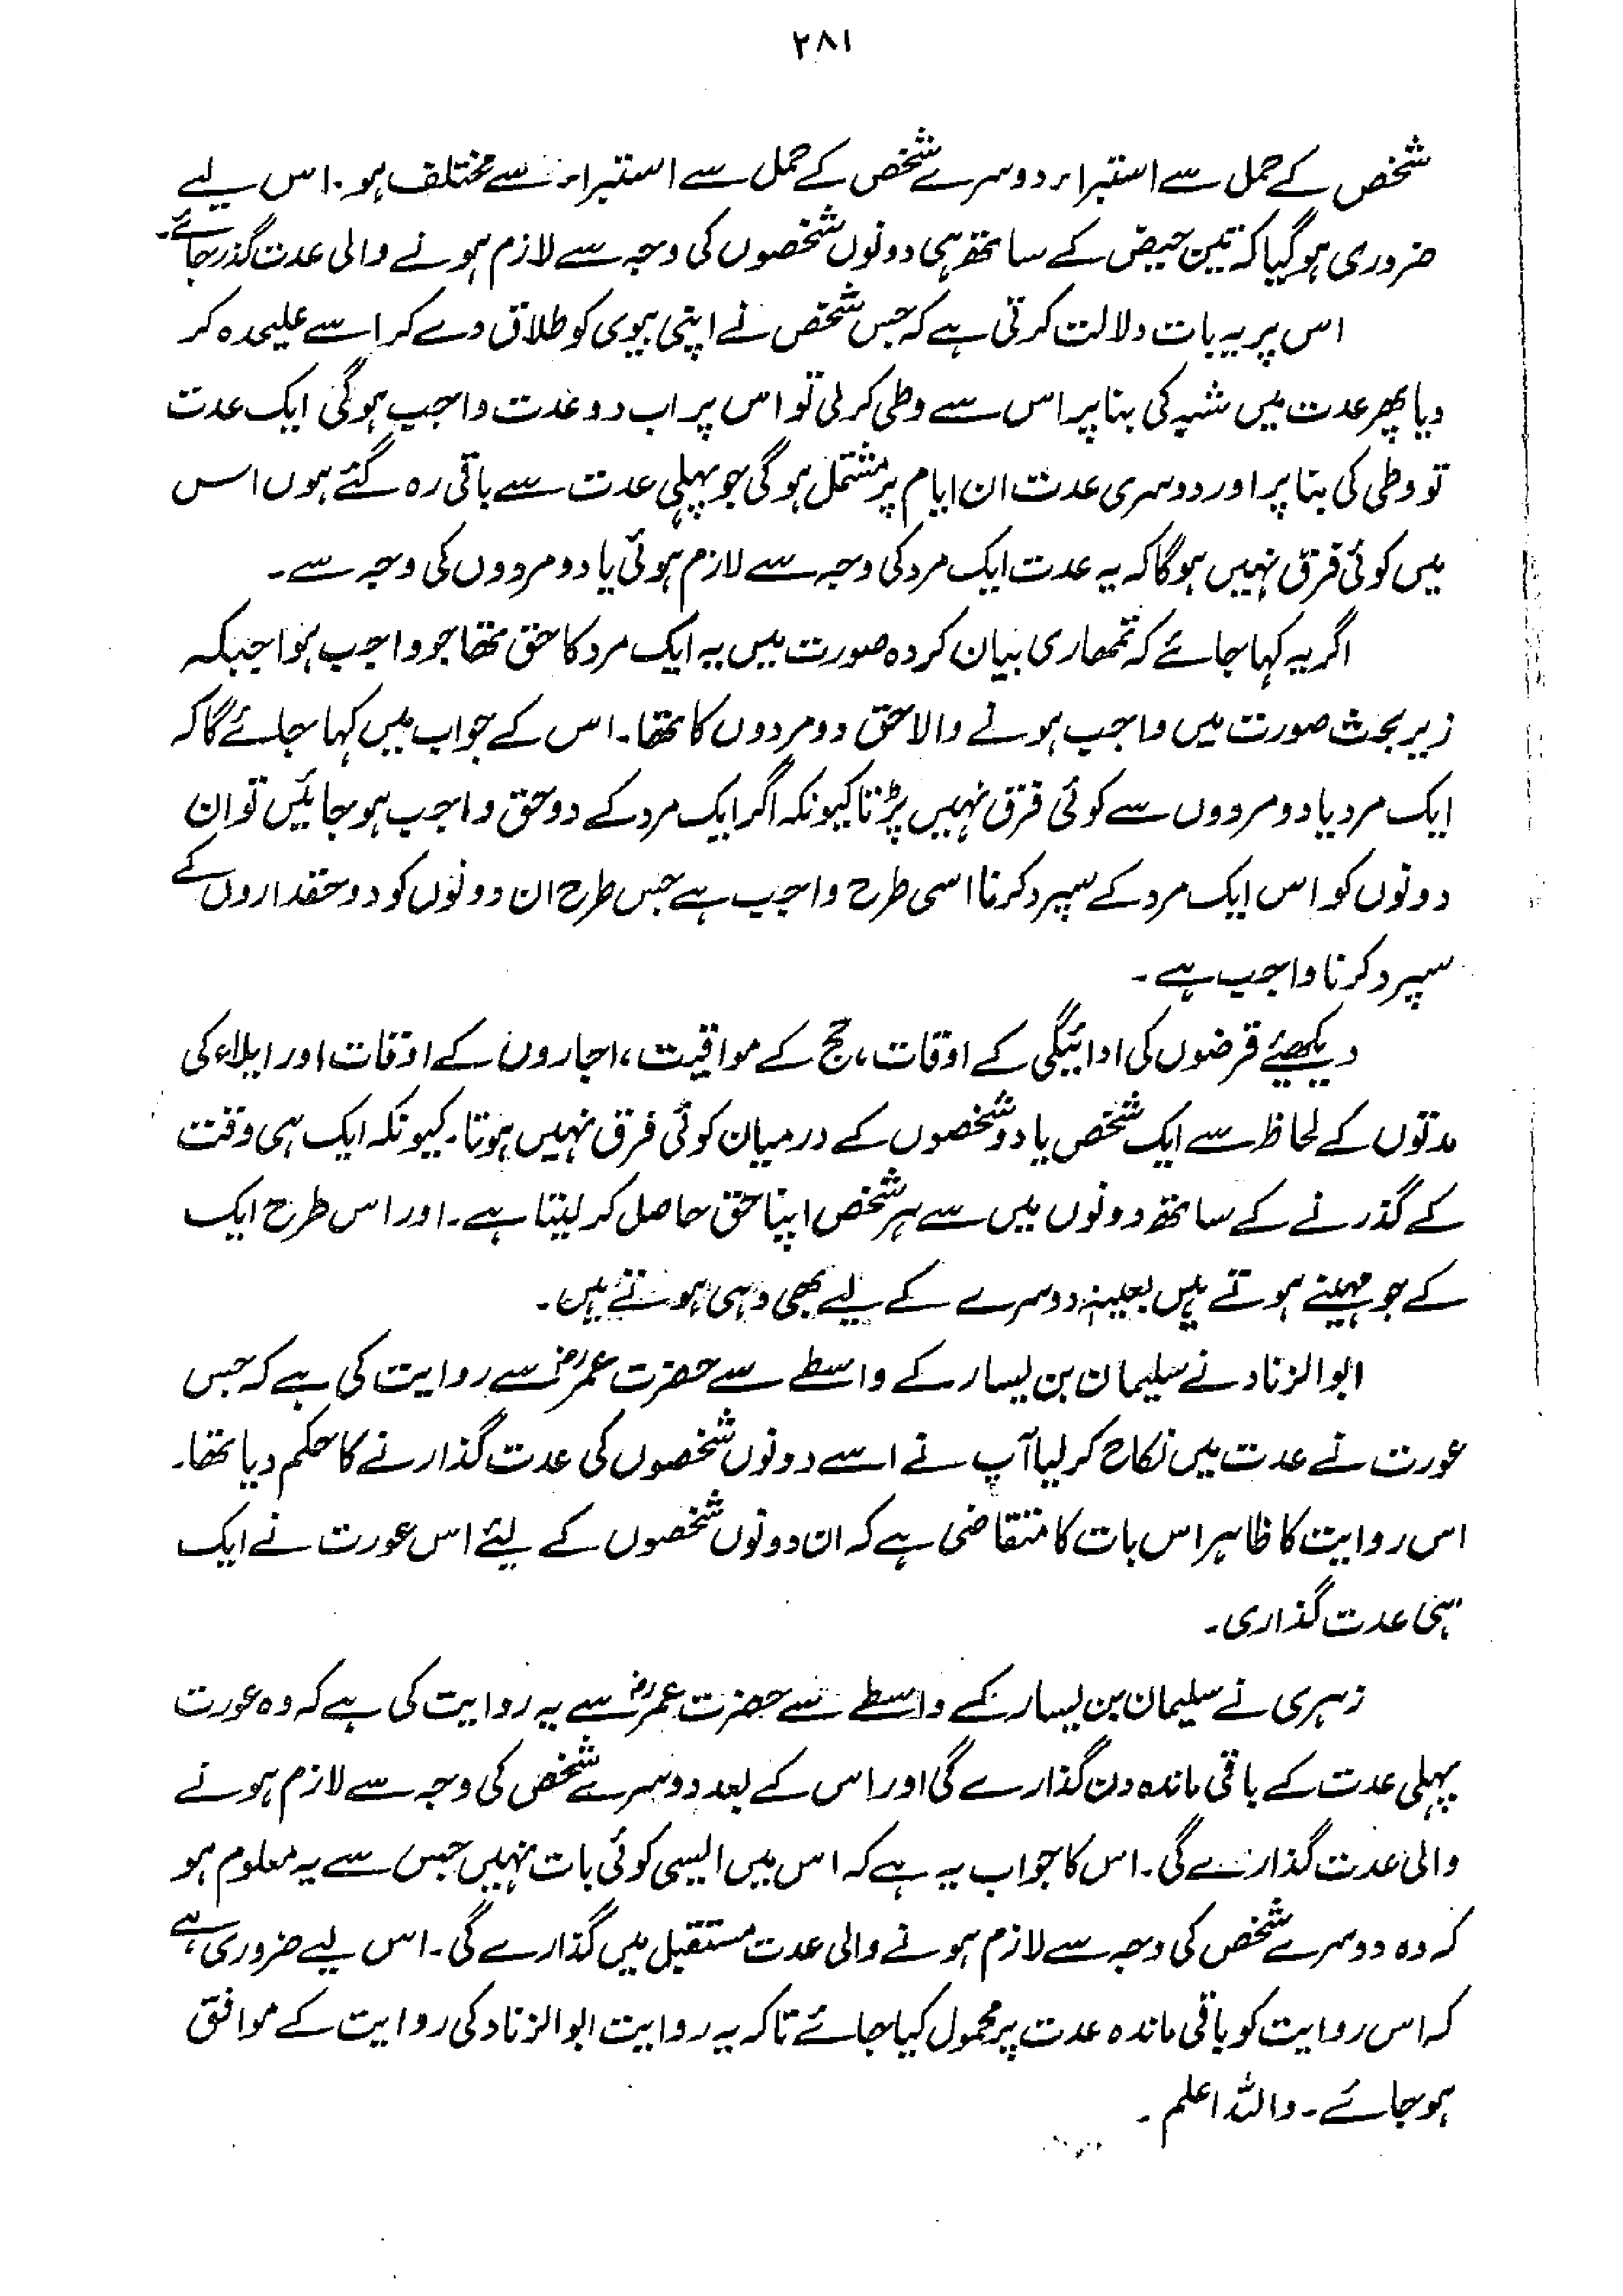 ۲۸۱
شخص کے حمل سے استبراء دوسرے شخص کے حمل سے استبراء سے مختلف ہو۔ اس لیے
ضروری ہو گیا کہ تین حیض کے ساتھ ہی دونوں شخصوں کی وجہ سے لازم ہونے والی عدت گذر جائے۔
اس پر یہ بات دلالت کرتی ہے کہ جس شخص نے اپنی بیوی کو طلاق دے کر اسے علیحدہ کر
دیا پھر عدت میں شبہ کی بنا پر اس سے وطی کر لی تو اس پر اب دو عدت واجب ہوگی ایک عدت
تو وطی کی بنا پر اور دوسری عدت ان ایام پر مشتمل ہوگی جو پہلی عدت سے باقی رہ گئے ہوں اس
میں کوئی فرق نہیں ہوگا کہ یہ عدت ایک مرد کی وجہ سے لازم ہوئی یا دو مردوں کی وجہ سے۔
اگر یہ کہا جائے کہ تمھاری بیان کردہ صورت میں یہ ایک مرد کا حق تھا جو واجب ہوا جبکہ
زیر بحث صورت میں واجب ہونے والا حق دو مردوں کا تھا۔ اس کے جواب میں کہا جائے گا کہ
ایک مرد یا دو مردوں سے کوئی فرق نہیں پڑتا کیونکہ اگر ایک مرد کے دو حق واجب ہو جائیں تو ان
دونوں کو اس ایک مرد کے سپرد کرنا اسی طرح واجب ہے جس طرح ان دونوں کو دو حقداروں کے
سپرد کرنا واجب ہے۔
دیکھیئے قرضوں کی ادائیگی کے اوقات، حج کے مواقیت، اجاروں کے اوقات اور ایلاء کی
مدتوں کے لحاظ سے ایک شخص یا دو شخصوں کے درمیان کوئی فرق نہیں ہوتا۔ کیونکہ ایک ہی وقت
کے گذرنے کے ساتھ دونوں میں سے ہر شخص اپنا حق حاصل کر لیتا ہے۔ اور اس طرح ایک
کے جو مہینے ہوتے ہیں بعینہٖ دوسرے کے لیے بھی وہی ہوتے ہیں۔
ابو الزناد نے سلیمان بن یسار کے واسطے سے حضرت عمرؓ سے روایت کی ہے کہ جس
عورت نے عدت میں نکاح کر لیا آپ نے اسے دونوں شخصوں کی عدت گذارنے کا حکم دیا تھا۔
اس روایت کا ظاہر اس بات کا متقاضی ہے کہ ان دونوں شخصوں کے لیئے اس عورت نے ایک
ہی عدت گذاری۔
زہری نے سلیمان بن یسار کے واسطے سے حضرت عمرؓ سے یہ روایت کی ہے کہ وہ عورت
پہلی عدت کے باقی ماندہ دن گذارے گی اور اس کے بعد دوسرے شخص کی وجہ سے لازم ہونے
والی عدت گذارے گی۔ اس کا جواب یہ ہے کہ اس میں ایسی کوئی بات نہیں جس سے یہ معلوم ہو
کہ وہ دوسرے شخص کی وجہ سے لازم ہونے والی عدت مستقبل میں گذارے گی۔ اس لیے ضروری ہے
کہ اس روایت کو باقی ماندہ عدت پر محمول کیا جائے تاکہ یہ روایت ابو الزناد کی روایت کے موافق
ہو جائے۔ واللہ اعلم۔